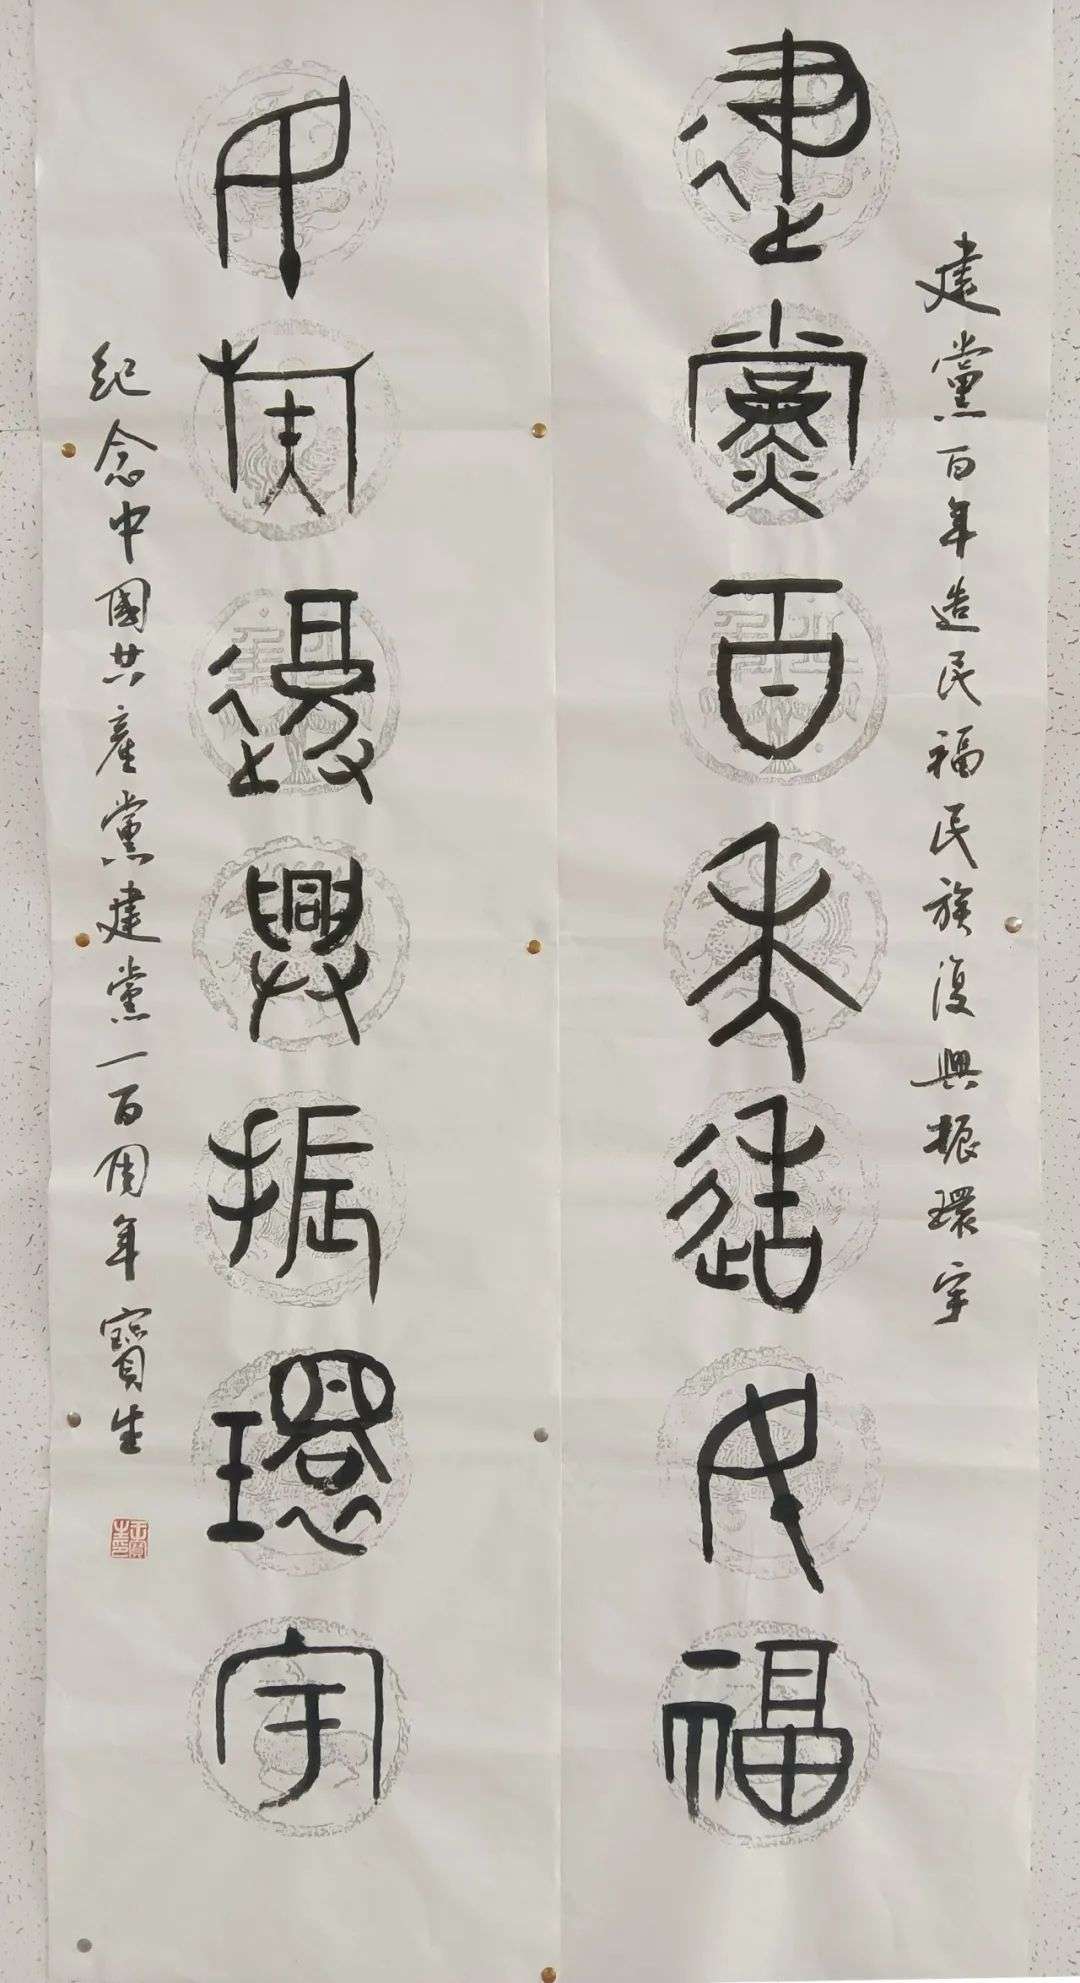 建黨百年造民福民族復興振環宇
建黨百年造民福
民族復興振環宇
紀念中國共產黨建黨一百周年 寶生